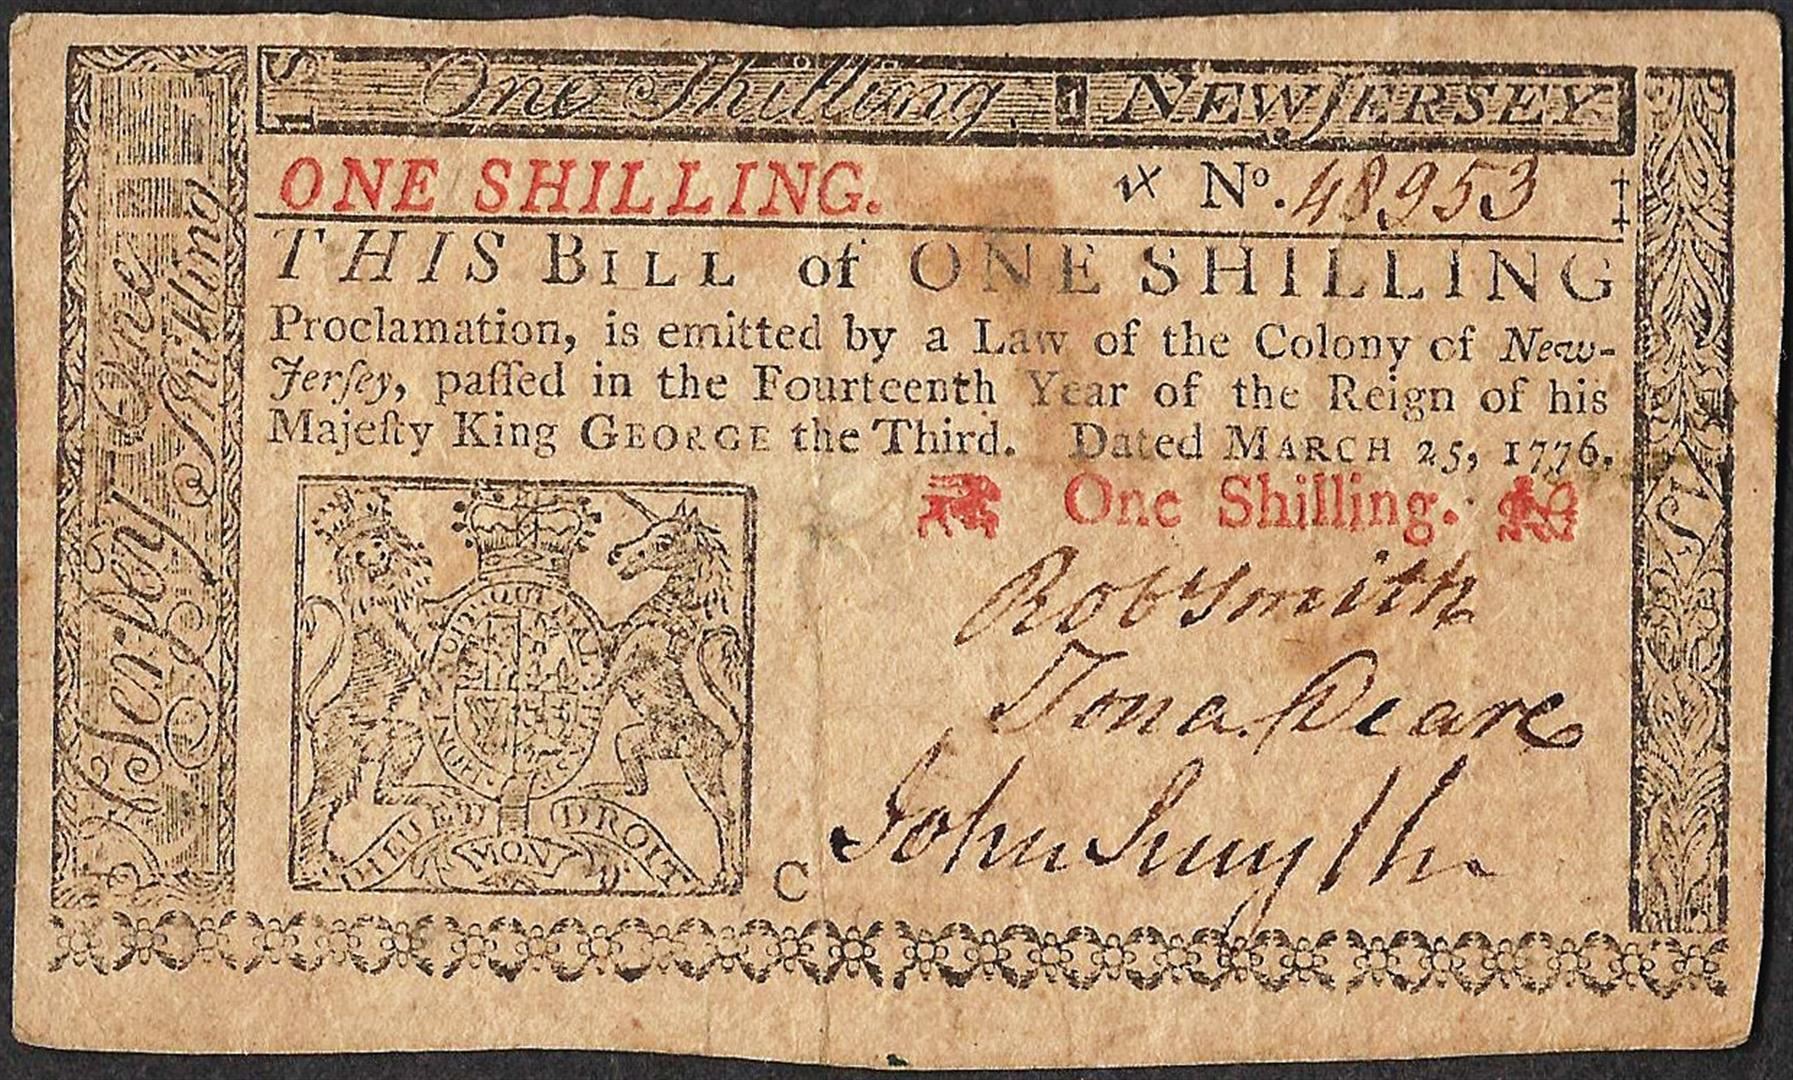 1S One Shilling. 1 NEW JERSEY
ONE SHILLING. No. 48953
THIS BILL of ONE SHILLING
Proclamation, is emitted by a Law of the Colony of New-
Jerſey, paſſed in the Fourteenth Year of the Reign of his
Majeſty King GEORGE the Third. Dated MARCH 25, 1776.
One Shilling.
Robt Smith
Jona. Deare
John Smyth
One
Shilling
Jersey
DROIT
MON
C